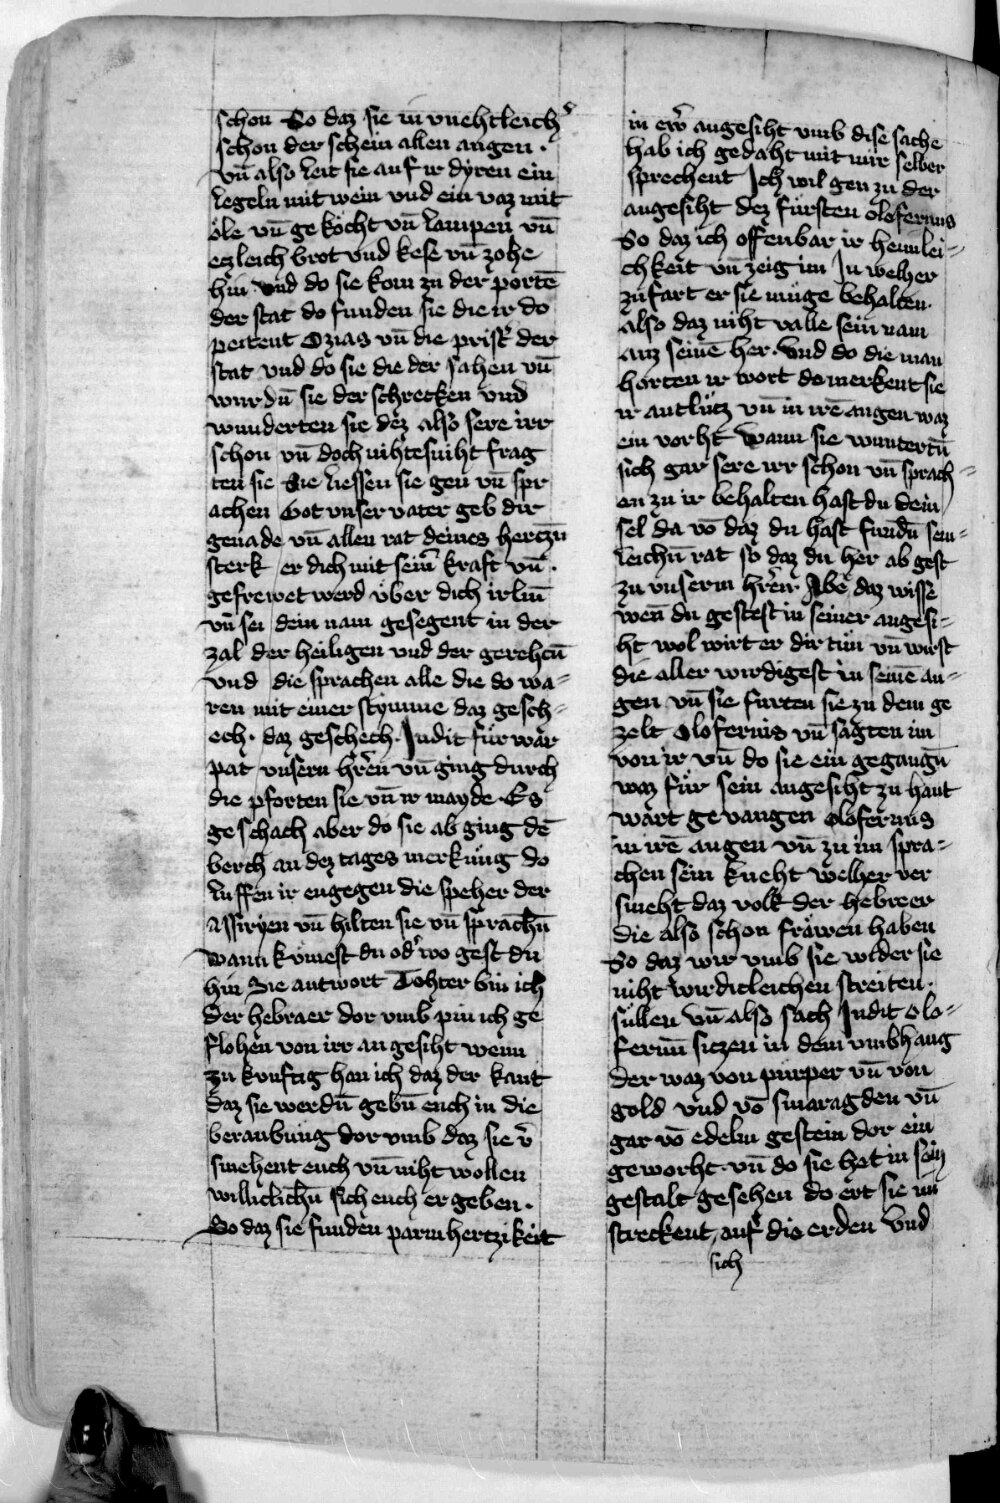 schon So daz sie in vnehtleich͛
schon der schein allen augen ·
vn̄ also leit sie auf ir dyren ein
legeln mit wein vnd ein vaz mit
öle vn̄ geköcht vn̄ lampen vn̄
ezleich brot vnd kese vn̄ zohe
hin vnd do sie kom zu der portē
der stat do funden sie die ir do
peitent Ozias vn̄ die prist͛ der
stat vnd do sie die der sahen vn̄
wurdn̄ sie der schrecken vnd
wunderten sie dez also sere irr
schon vn̄ doch nihtesniht frag
ten sie Sie liessen sie gen vn̄ spr
achen Got vnser vater geb dir
genade vn̄ allen rat deines hertzn̄
sterk er dich mit sein͛ kraft vn̄ ·
gefrewet werd vber dich irlm̄
vn̄ sei dein nam gesegent in der
zal der heiligen vnd der gerehtn̄
vnd die sprachen alle die do wa-
ren mit einer stymme daz gesch-
ech · daz geschech · Judit für war
pat vnsern hr̄en vn̄ ging durch
die pforten sie vn̄ ir mayde · Es
geschach aber do sie ab ging dē
berch an dez tages merkung do
luffen ir engegen die speher der
assiryen vn̄ hilten sie vn̄ sprachn̄
wann kvmest du od͛ wo gest du
hin Sie antwort Tohter bin ich
der hebraer dor vmb pin ich ge
flohen von irr angesiht wenn
zu kvnftig han ich daz der kant
daz sie werdn̄ gebn̄ euch in die
beraubung dor vmb daz sie v͛
smehent euch vn̄ niht wollen
williclichn̄ sich euch ergeben ·
So daz sie funden parmhertzikeit
in ew͛ angesiht vmb dise sache
hab ich gedaht mit mir selber
sprechent Ich wil gen zu der
angesiht dez fürsten olofernus
So daz ich offenbar ir heimlei-
chkeit vn̄ zeig im In welher
zu fart er sie müge behalten ·
also daz niht valle sein nam
auz seinē her · Vnd do die man
horten ir wort do merkent sie
ir antlütz vn̄ in irē augen waz
ein vorht Wann sie wuntertn̄
sich gar sere irr schon vn̄ sprach-
en zu ir behalten hast du dein
sel da vō daz du hast fundn̄ sem-
leichn̄ rat so daz du her ab gest
zu vnserm hr̄en Abē daz wisse
wen̄ du gestest in seiner angesi-
ht wol wirt er dir tün vn̄ wirst
die aller wirdigest in seinē au-
gen vn̄ sie furten sie zu dem ge
zelt olofernis vn̄ sagten im
von ir vn̄ do sie ein gegangn̄
waz für sein angesiht zu hant
wart gevangen olofernus
in irē augen vn̄ zu im spra-
chen sein kneht welher ver
smeht daz volk der hebreer
die also schon fräwen haben
So daz wir vmb sie wider sie
niht wirdicleichen streiten ·
sullen vn̄ also sach Judit olo-
fernn̄ siczen in dem vmbhang
der waz von purper vn̄ von
gold vnd vō smaragden vn̄
gar vō edelm gestein dor ein
geworht · vn̄ do sie het in sein
gestalt gesehen do ert sie im
streckent auf die erden vnd
sich